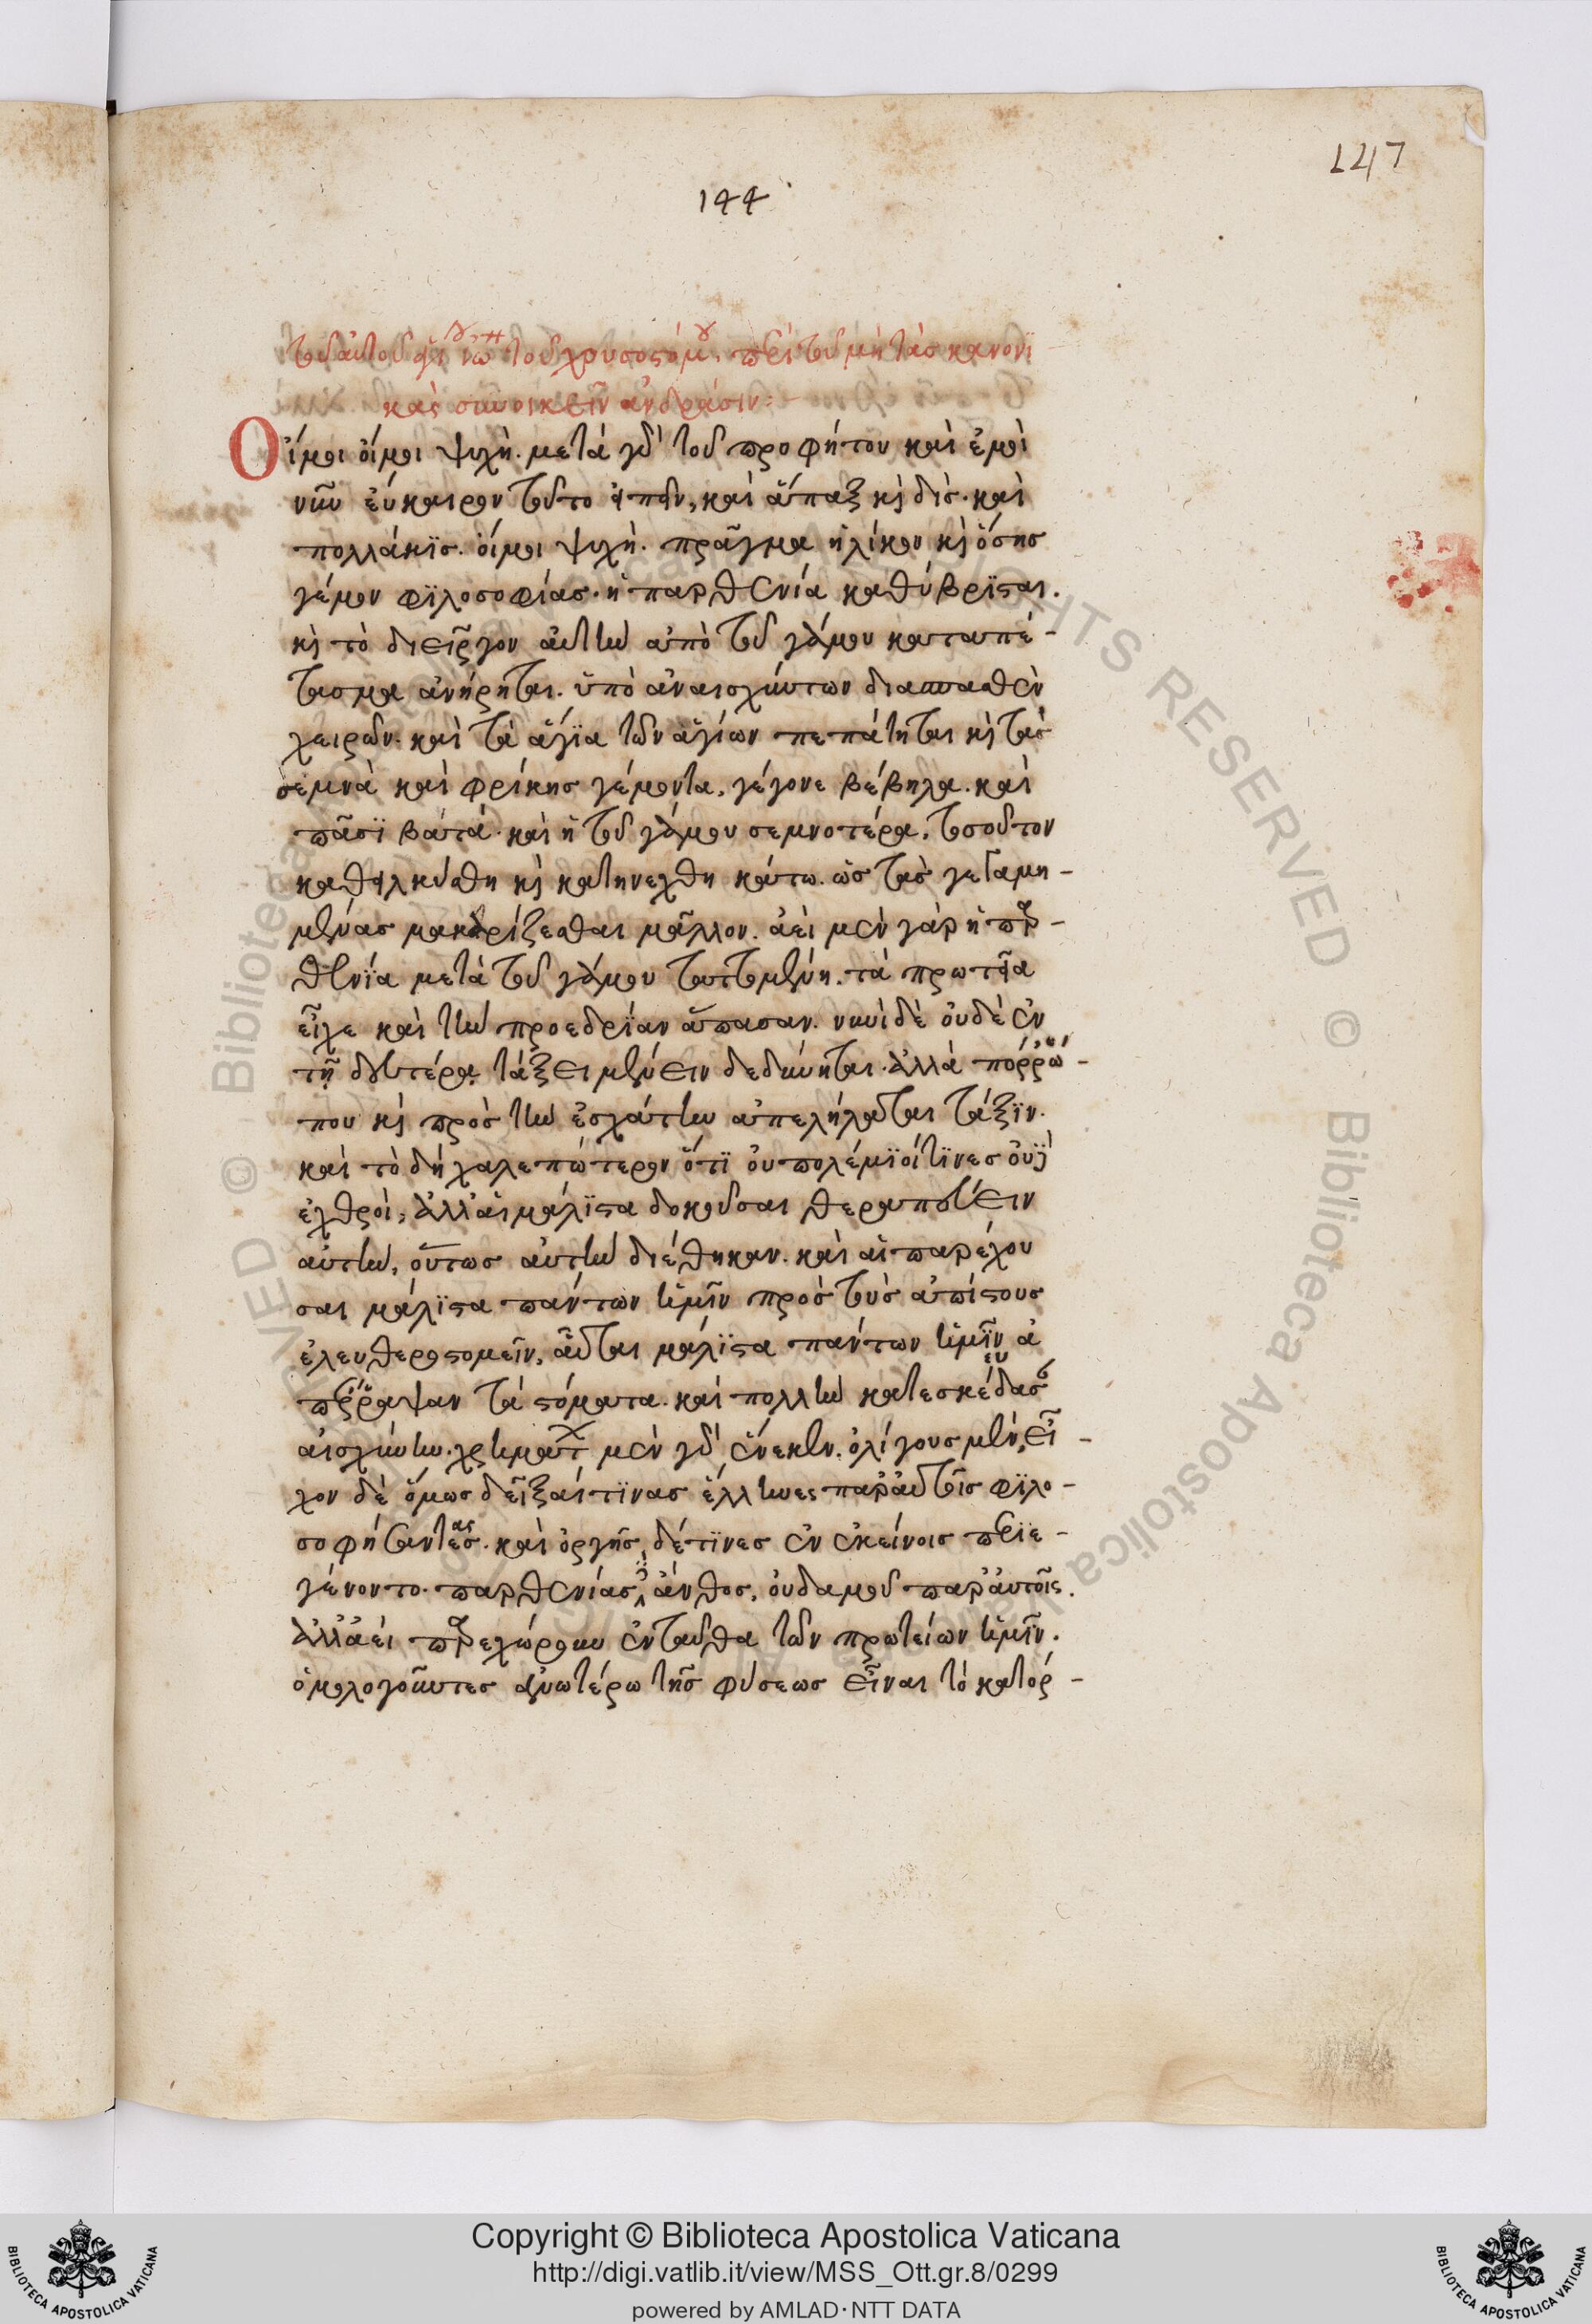 147
144
τοῦ αὐτοῦ ἁγί ἰω τοῦ χρυσοστόμου, περὶ τοῦ μὴ τὰς κανονι
κὰς συνοικεῖν ἀνδράσιν:-
Οἴμοι οἴμοι ψυχὴ. μετὰ γὰρ τοῦ προφήτου καὶ ἐμοὶ
νῦν εὔκαιρον τοῦτο εἰπεῖν, καὶ ἅπαξ κὶ δὶς. καὶ
πολλάκις. οἴμοι ψυχὴ. πρᾶγμα ἡλίκον κὶ ὅσης
γέμον φιλοσοφίας. ἡ παρθενία καθύβρισται.
κὶ τὸ διεῖργον αὐτὴν ἀπὸ τοῦ γάμου καταπέ-
τασμα ἀνήρηται. ὑπὸ ἀναισχύντων διασπασθὲν
χειρῶν. καὶ τὰ ἅγια τῶν ἁγίων πεπάτηται κὶ τὰ
σεμνὰ καὶ φρίκης γέμοντα, γέγονε βέβηλα. καὶ
πᾶσι βατά. καὶ ἡ τοῦ γάμου σεμνοτέρα, τοσοῦτον
καθειλκύσθη κὶ κατηνέχθη κάτω. ὡς τὰς γεγαμη-
μένας μακαρίζεσθαι μᾶλλον. ἀεὶ μὲν γὰρ ἡ παρ-
θενία μετὰ τοῦ γάμου ταττομένη. τὰ πρωτεῖα
εἶχε καὶ τὴν προεδρίαν ἅπασαν. νυνὶ δὲ οὐδὲ ἐν
τῇ δευτέρᾳ τάξει μένειν δεδύνηται. ἀλλὰ πόρρω-
που κὶ πρὸς τὴν ἐσχάτην ἀπελήλαται τάξιν.
καὶ τὸ δὴ χαλεπώτερον ὅτι οὐ πολέμιοί τινες οὐδ
ἐχθροὶ, ἀλλ αἱ μάλιστα δοκοῦσαι θεραπεύειν
αὐτὴν, οὕτως αὐτὴν διέθηκαν. καὶ αἱ παρέχου
σαι μάλιστα πάντων ἡμῖν πρὸς τοὺς ἀπίστους
ἐλευθεροστομεῖν, αὗται μάλιστα πάντων ἡμῖν ἀ
πέρραψαν τὰ στόματα. καὶ πολλὴν κατεσκέδασαν
αἰσχύνην. χρημάτων μὲν γὰρ ἕνεκεν. ὀλίγους μὲν, εἶ-
χον δὲ ὅμως δεῖξαί τινας ἕλληνες παρ αὐτοῖς φιλο-
σοφήσαντας. καὶ ὀργῆς, δέ τινες ἐν ἐκείνοις περιε-
γένοντο. παρθενίας ἄνθος, οὐδαμοῦ παρ αὐτοῖς.
ἀλλ ἀεὶ παρεχώρουν ἐνταῦθα τῶν πρωτείων ἡμῖν.
ὁμολογοῦντες ἀνωτέρω τῆς φύσεως εἶναι τὸ κατόρ-
Copyright © Biblioteca Apostolica Vaticana
http://digi.vatlib.it/view/MSS_Ott.gr.8/0299
powered by AMLAD·NTT DATA
BIBLIOTECA APOSTOLICA VATICANA
BIBLIOTECA APOSTOLICA VATICANA